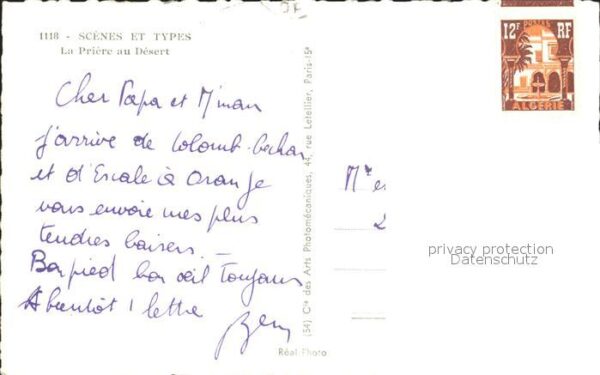 1118 - SCÈNES ET TYPES
La Prière au Désert
Cher Papa et M'man
j'arrive de Colomb-bechar
et d'Escale à Oran je
vous envoie mes plus
tendres baisers _
Bon pied bon œil Toujours
A bientôt 1 lettre
Réal-Photo
(54) Cie des Arts Photomécaniques, 44, rue Letellier, Paris-15e
12F POSTES RF
ALGERIE
privacy protection
Datenschutz